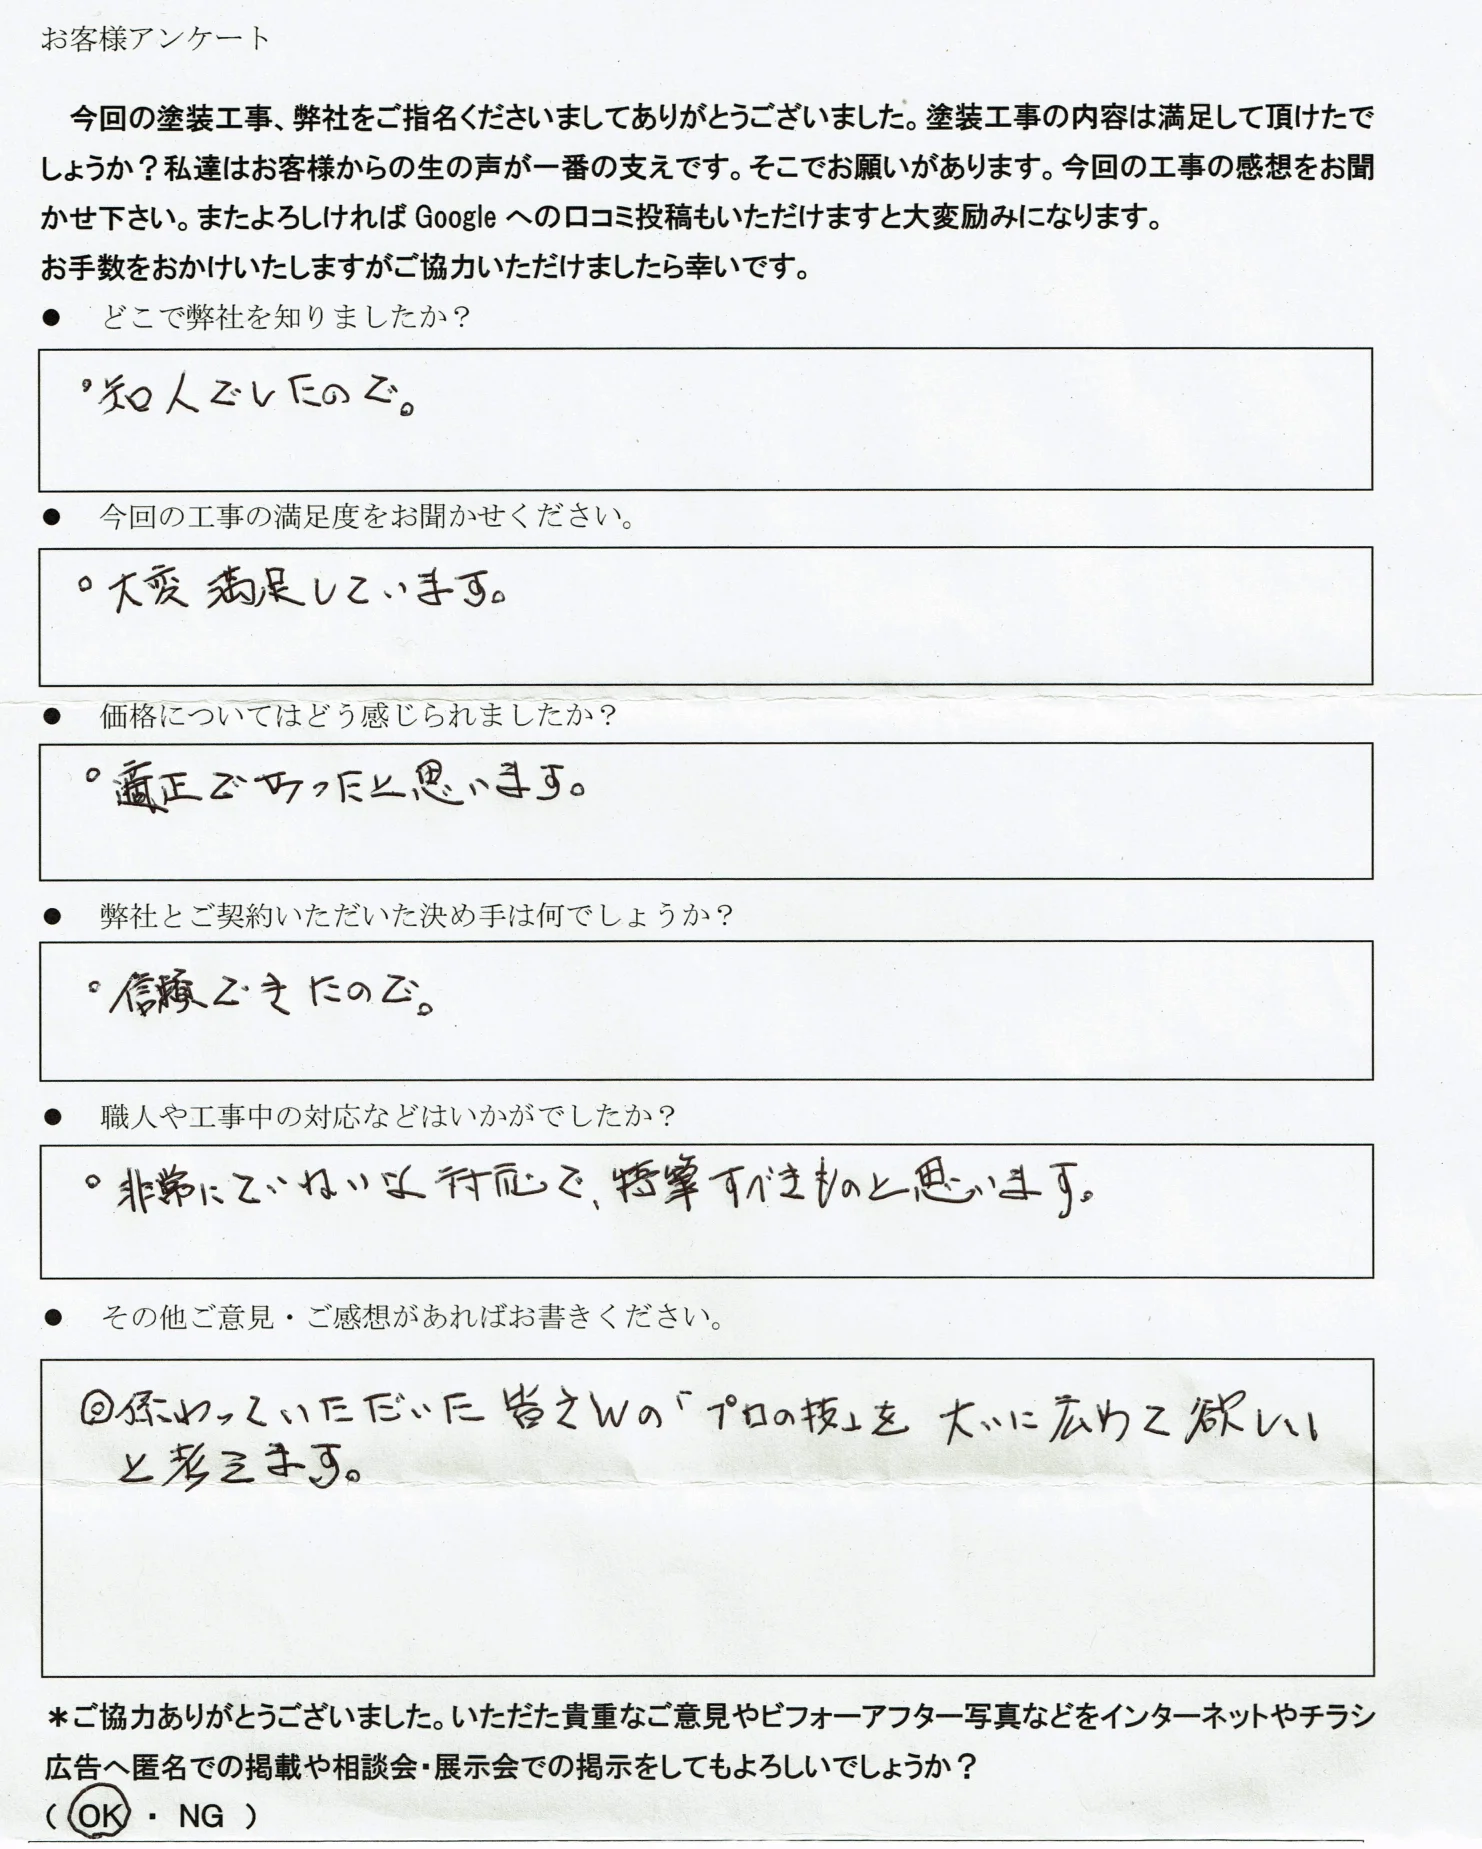 お客様アンケート
今回の塗装工事、弊社をご指名くださいましてありがとうございました。塗装工事の内容は満足して頂けたで
しょうか？私達はお客様からの生の声が一番の支えです。そこでお願いがあります。今回の工事の感想をお聞
かせ下さい。またよろしければ Google への口コミ投稿もいただけますと大変励みになります。
お手数をおかけいたしますがご協力いただけましたら幸いです。
● どこで弊社を知りましたか？
°知人でしたので。
● 今回の工事の満足度をお聞かせください。
°大変満足しています。
● 価格についてはどう感じられましたか？
°適正であったと思います。
● 弊社とご契約いただいた決め手は何でしょうか？
°信頼できたので。
● 職人や工事中の対応などはいかがでしたか？
°非常にていねいな対応で、特筆すべきものと思います。
● その他ご意見・ご感想があればお書きください。
◎係わっていただいた皆さんの「プロの技」を大いに広めて欲しい
と考えます。
＊ご協力ありがとうございました。いただた貴重なご意見やビフォーアフター写真などをインターネットやチラシ
広告へ匿名での掲載や相談会・展示会での掲示をしてもよろしいでしょうか？
（ OK ・ NG ）